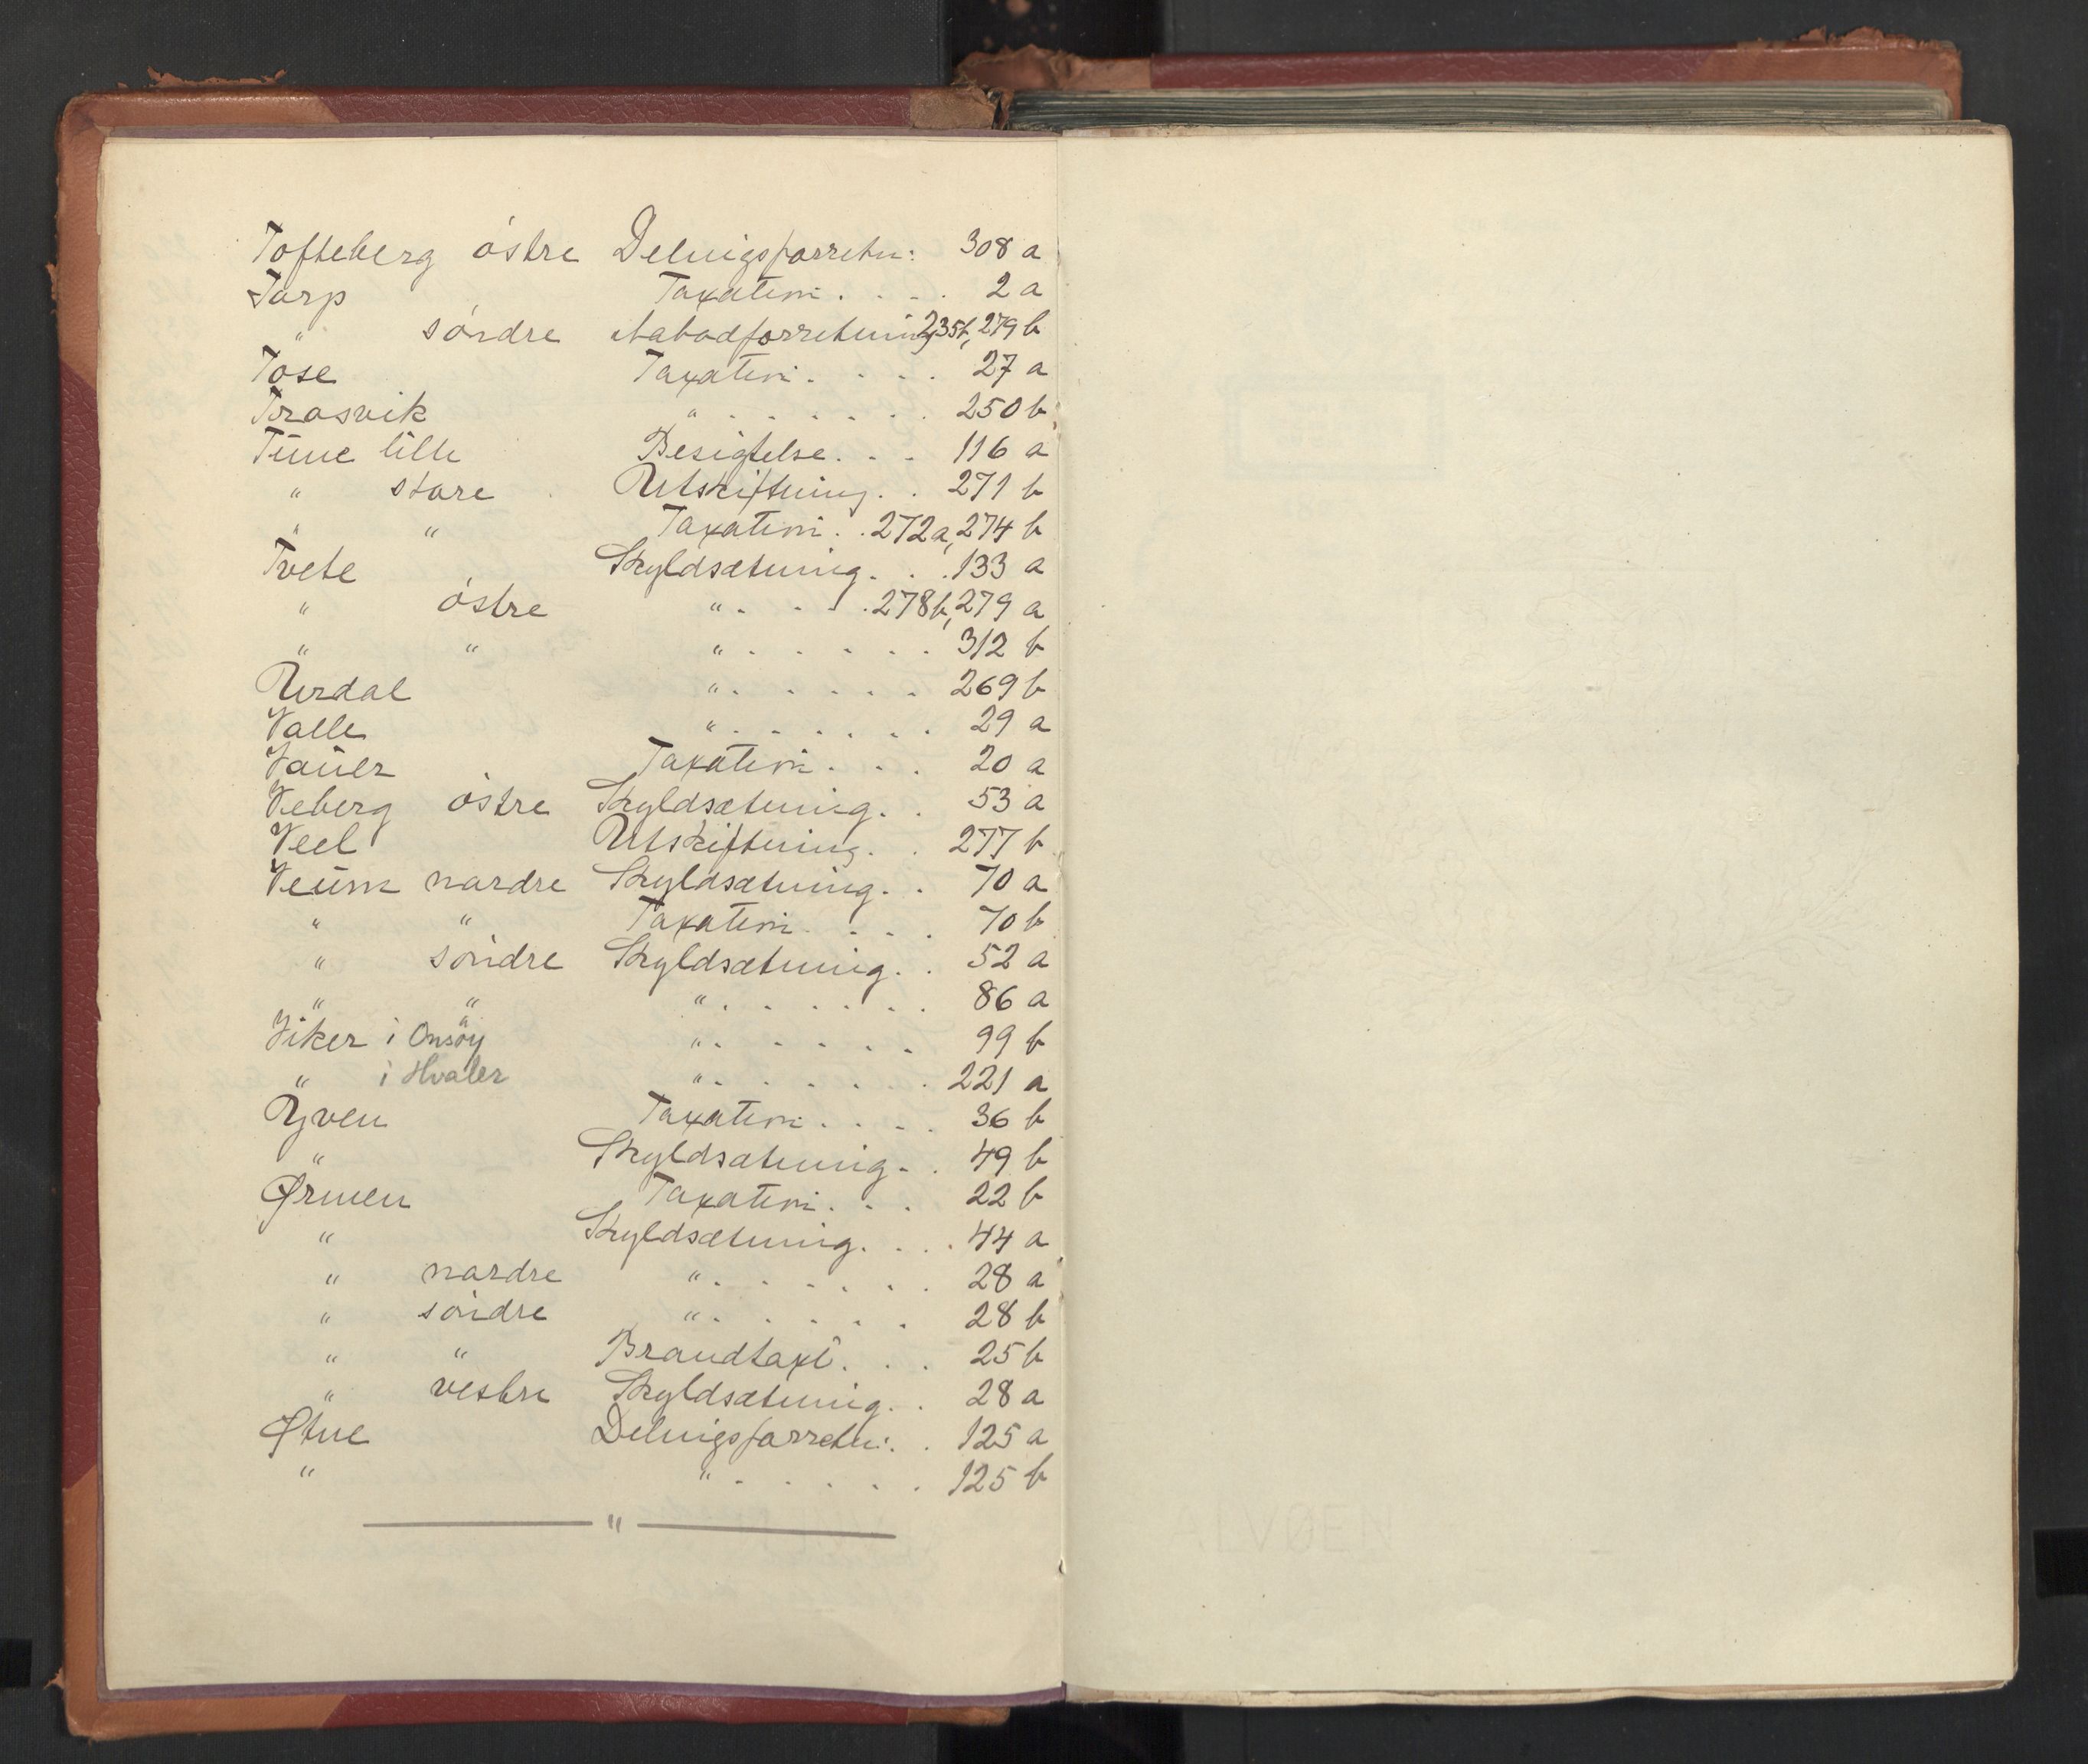 Tofteberg östre Delingsforretn: 308 a
Torp Taxation . . . . 2 a
" söndre Aabodforretning 235 b, 279 b
Tose Taxation . . . . 27 a
Trosvik " . . . . . . . 250 b
Tune lille Besigtelse . . . 116 a
" store Utskiftning . . 271 b
" " Taxation . . 272 a, 274 b
Tvete Skyldsætning . . . 133 a
" östre " . . . . 278 b, 279 a
" " " . . . . . . 312 b
Urdal " . . . . . . 269 b
Valle " . . . . . . 29 a
Vauer Taxation . . . 20 a
Veberg östre Skyldsætning . . 53 a
Veel Utskiftning . . 277 b
Veum nordre Skyldsætning . . 70 a
" " Taxation . . . . 70 b
" söndre Skyldsætning . . 52 a
" " " . . . . . . 86 a
Viker i Onsöy " . . . . . . 99 b
" i Hvaler " . . . . . . 221 a
Yven Taxation . . . . 36 b
" Skyldsætning . . 49 b
Ørmen Taxation . . . 22 b
" Skyldsætning . . . 44 a
" nordre " . . . . . . 28 a
" söndre " . . . . . . 28 b
" " Brandtaxt . . . 25 b
" vestre Skyldsætning . . 28 a
Øtne Delingsforretn: . . 125 a
" " . . . . . 125 b
"
ALVØEN